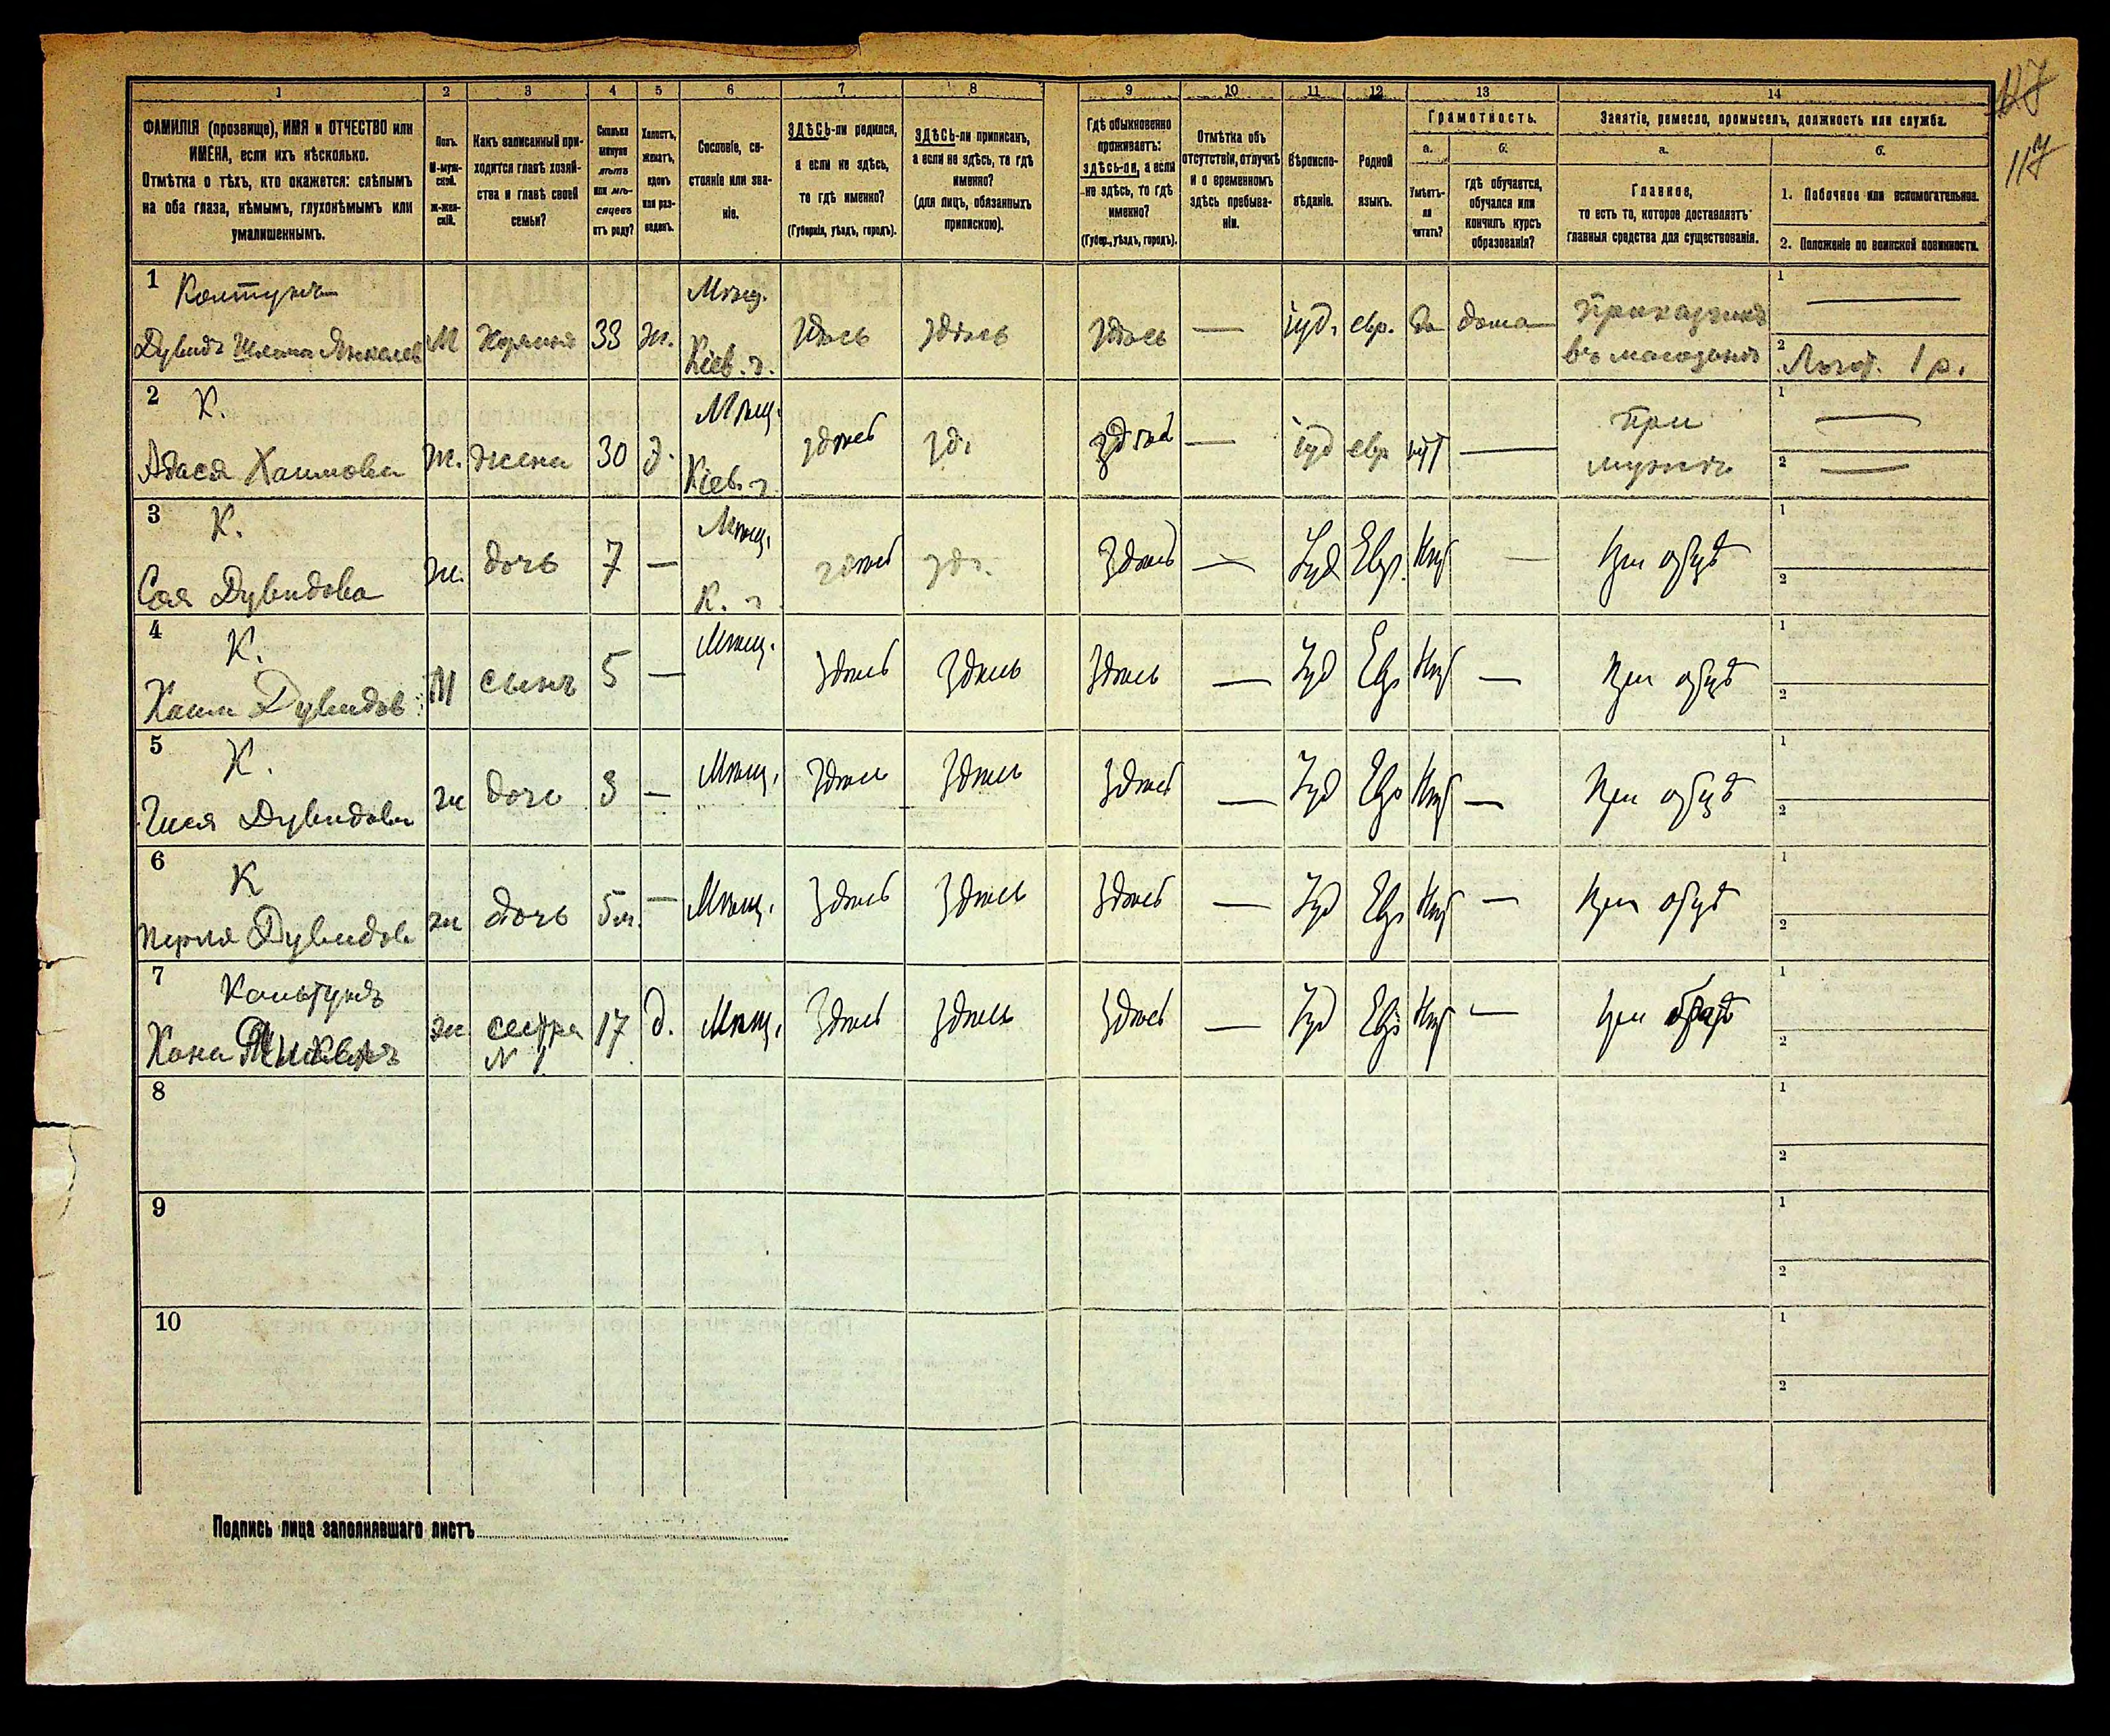 117
117
1 2 3 4 5 6 7 8 9 10 11 12 13 14
ФАМИЛІЯ (прозвище), ИМЯ и ОТЧЕСТВО или
ИМЕНА, если ихъ нѣсколько.
Отмѣтка о тѣхъ, кто окажется: слѣпымъ
на оба глаза, нѣмымъ, глухонѣмымъ или
умалишеннымъ.
Полъ.
М-муж-
ской.
ж-жен-
скій.
Какъ записанный при-
ходится главѣ хозяй-
ства и главѣ своей
семьи?
Сколько
минуло
лѣтъ
или мѣ-
сяцевъ
отъ роду?
Холостъ,
женатъ,
вдовъ
или раз-
веденъ.
Сословіе, со-
стояніе или зва-
ніе.
ЗДѢСЬ-ли родился,
а если не здѣсь,
то гдѣ именно?
(Губернія, уѣздъ, городъ).
ЗДѢСЬ-ли приписанъ,
а если не здѣсь, то гдѣ
именно?
(для лицъ, обязанныхъ
припискою).
Гдѣ обыкновенно
проживаетъ:
ЗДѢСЬ-ли, а если
не здѣсь, то гдѣ
именно?
(Губер., уѣздъ, городъ).
Отмѣтка объ
отсутствіи, отлучкѣ
и о временномъ
здѣсь пребыва-
ніи.
Вѣроиспо-
вѣданіе.
Родной
языкъ.
Грамотность.
а.
Умѣетъ-
ли
читать?
б.
гдѣ обучается,
обучался или
кончилъ курсъ
образованія?
Занятіе, ремесло, промыселъ, должность или служба.
а.
Главное,
то есть то, которое доставляетъ
главныя средства для существованія.
б.
1. Побочное или вспомогательное.
2. Положеніе по воинской повинности.
1 Колтунъ Мѣщ. Приказчикъ 1 —
Дувидъ Шлема Янкелевъ М Хозяинъ 33 ж. Кіев. г. Здѣсь здѣсь Здѣсь — іуд. евр. да дома въ магазинѣ 2 Льгот. 1 р.
2 К. Мѣщ. при 1 —
Адася Хаимова ж. жена 30 з. Кіев. г. здѣсь зд. здѣсь — іуд евр нѣт — мужѣ 2 —
3 К. Мѣщ. 1
Сая Дувидова ж. дочь 7 — К. г. здѣсь зд. Здѣсь — Іуд Евр. Нѣт — при отцѣ 2
4 К. Мѣщ. 1
Хаим Дувидов М сынъ 5 — Здѣсь Здѣсь Здѣсь — Іуд Евр Нѣт — при отцѣ 2
5 К. Мѣщ. 1
Гися Дувидова ж дочь 3 — Здѣсь Здѣсь Здѣсь — Іуд Евр Нѣт — При отцѣ 2
6 К 1
Перля Дувидов ж дочь 5 м. — Мѣщ. Здѣсь Здѣсь Здѣсь — Іуд Евр Нѣт — При отцѣ 2
7 Кольтунъ 1
Хана ж сестра 17 д. Мѣщ. Здѣсь Здѣсь Здѣсь — Іуд Евр Нѣт — при братѣ 2
N 1
8 1
2
9 1
2
10 1
2
Подпись лица заполнявшаго листъ